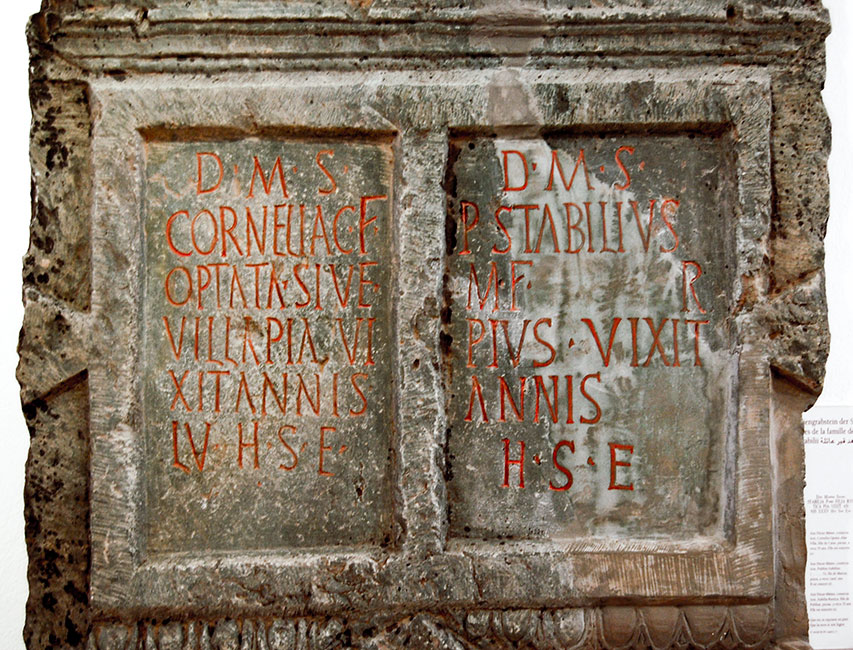 D·M·S·
CORNELIACF
OPTATA·SIVE
VILLAPIA VI
XITANNIS
LV·H·S·E·
D·M·S·
P STABILIVS
M·F· R
PIVS·VIXIT
ANNIS
H·S·E
de la famille de